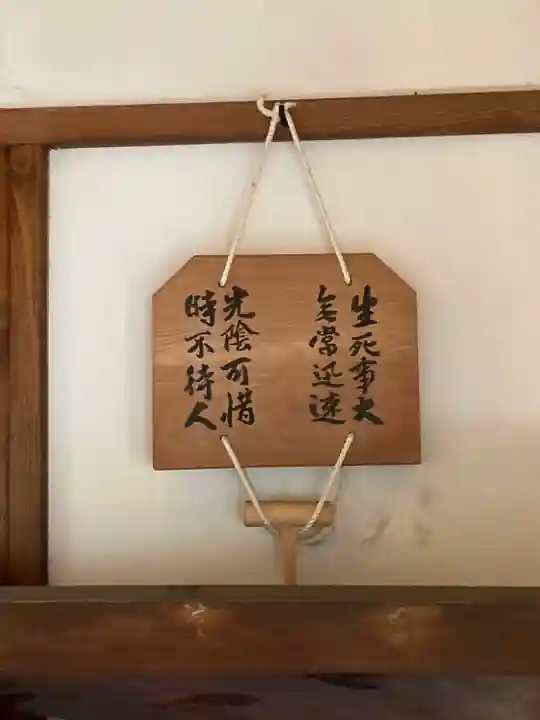 生死事大
無常迅速
光陰可惜
時不待人